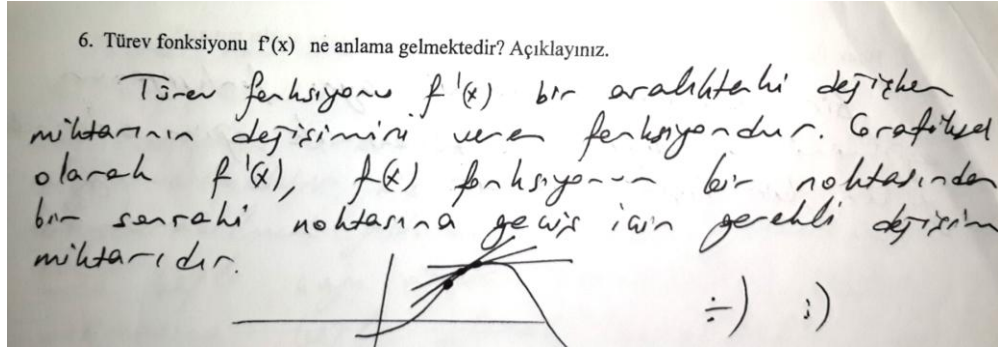 6. Türev fonksiyonu f'(x) ne anlama gelmektedir? Açıklayınız.
Türev fonksiyonu f'(x) bir aralıktaki değişken
miktarının değişimini veren fonksiyondur. Grafiksel
olarak f'(x), f(x) fonksiyonun bir noktasından
bir sonraki noktasına geçiş için gerekli değişim
miktarıdır.
÷) :)